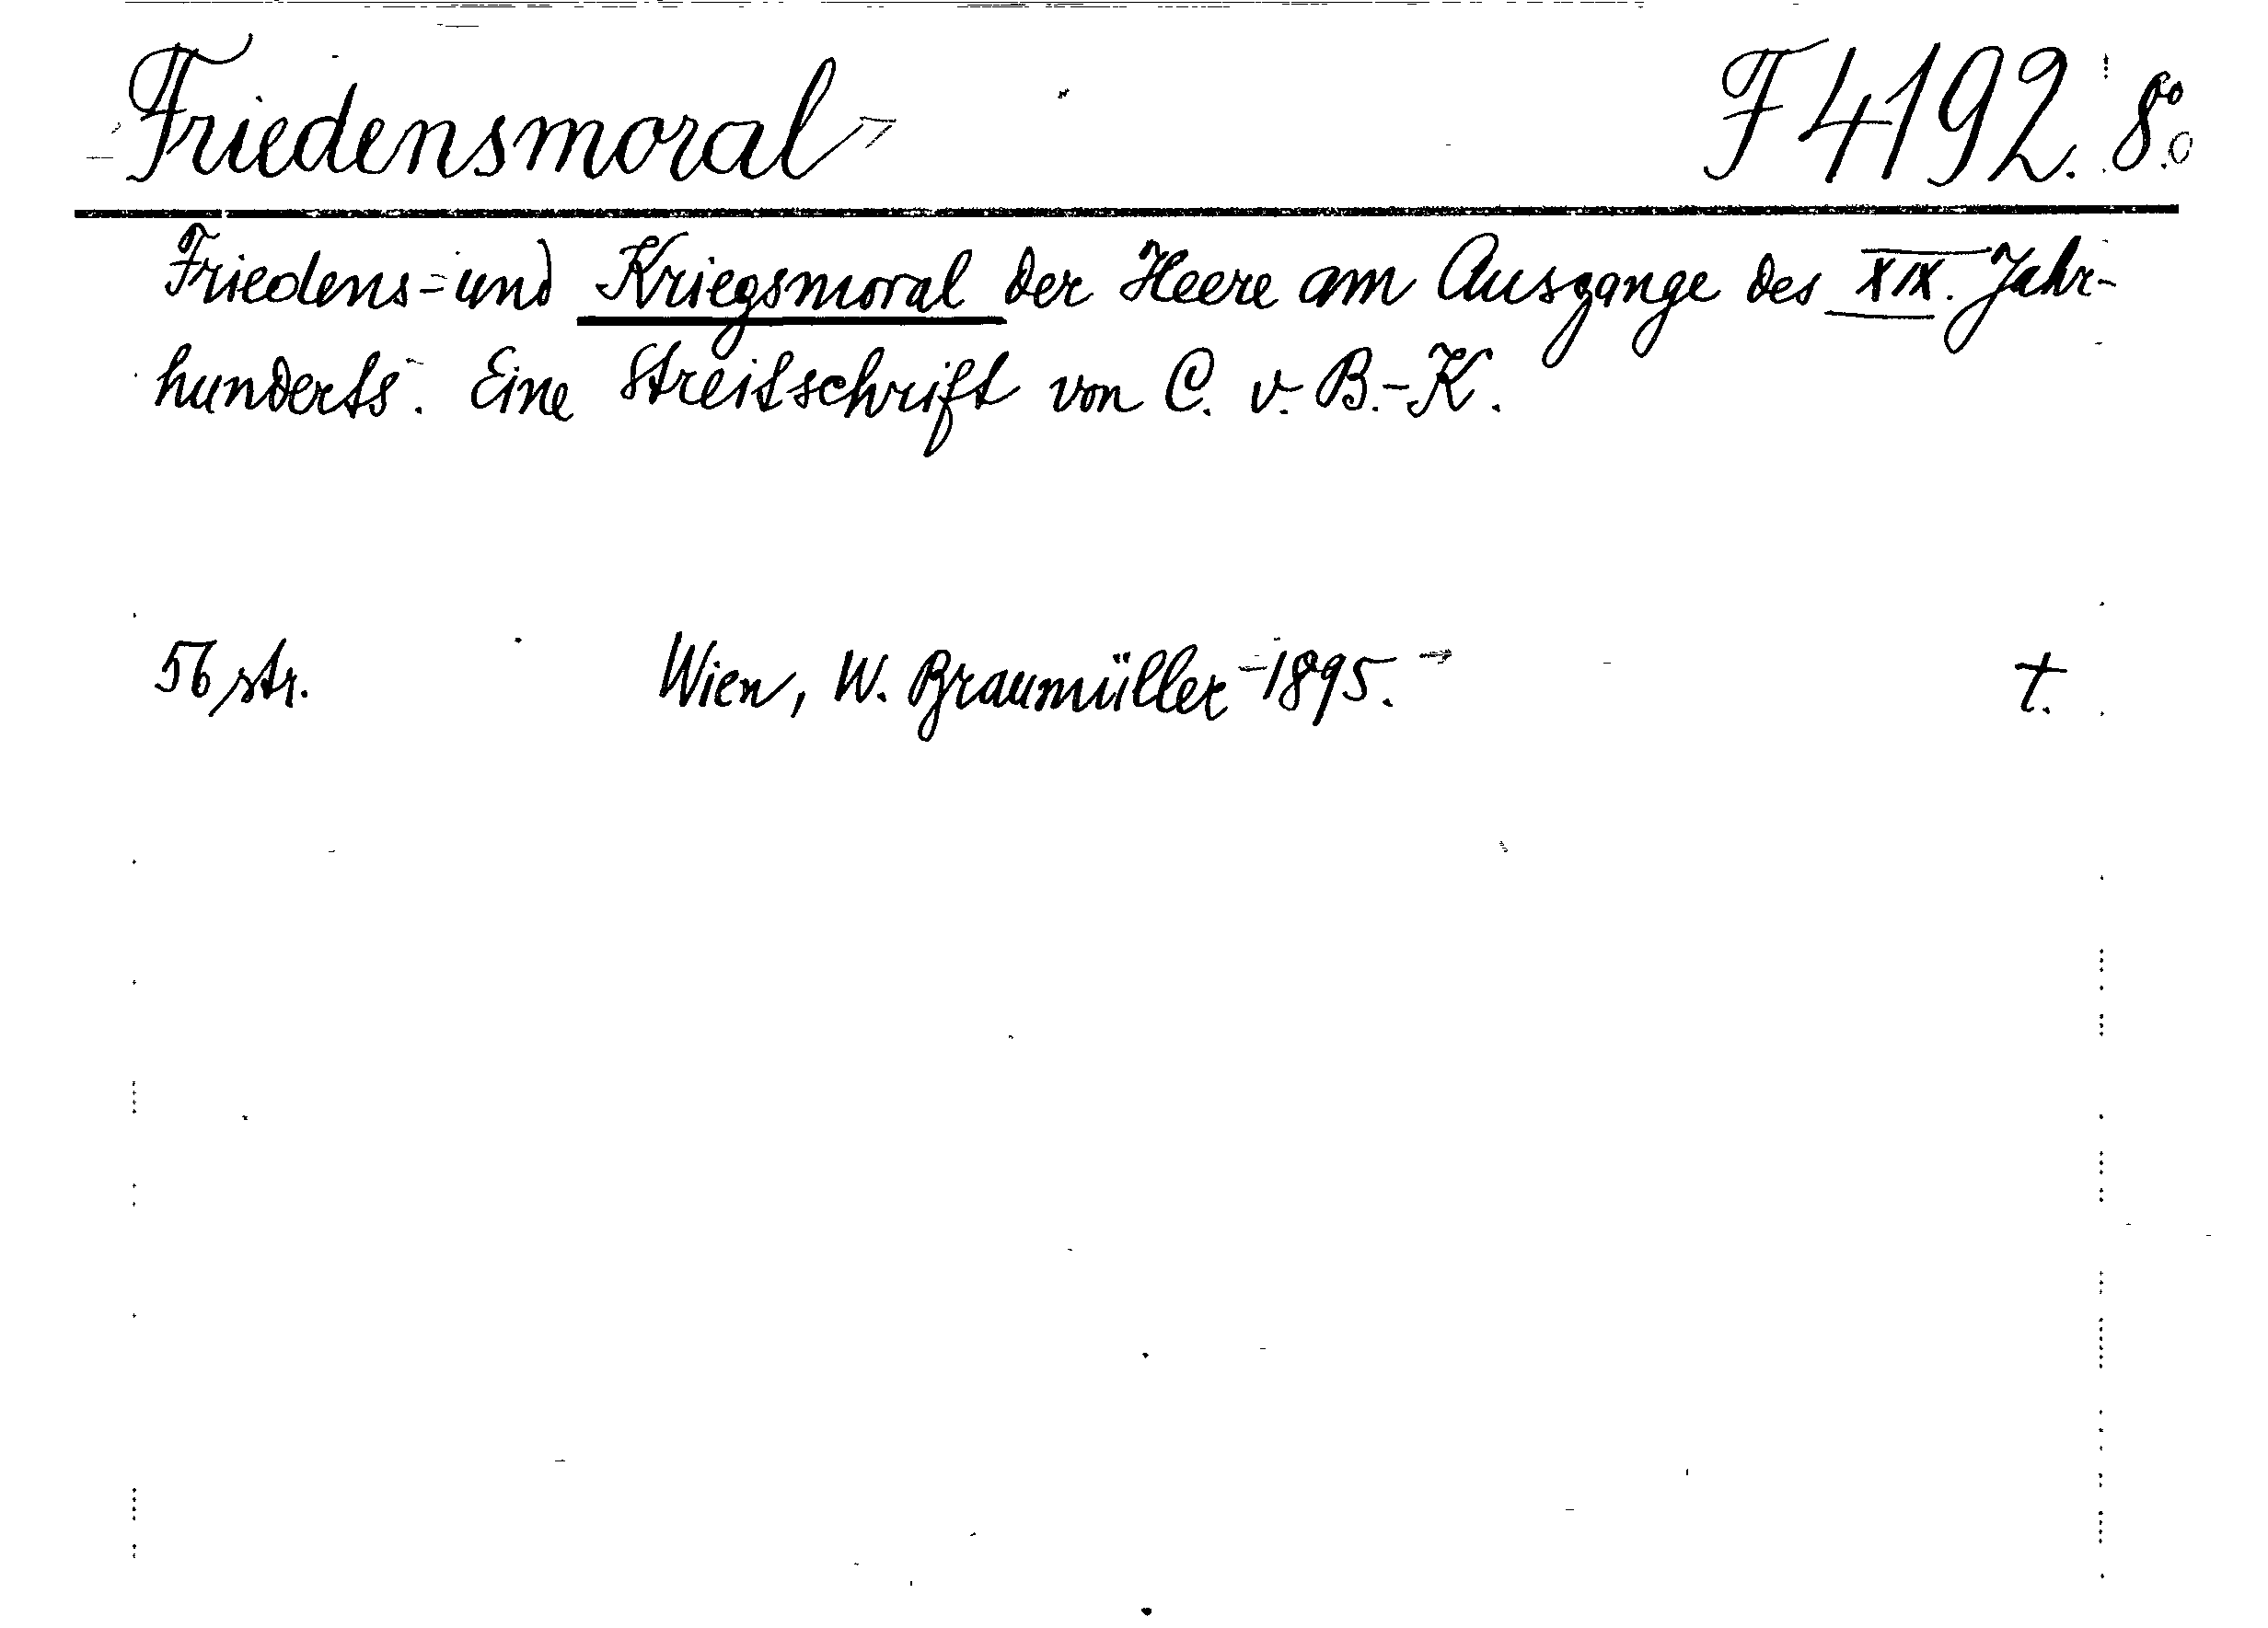 Friedensmoral F 4192. 8º
Friedens- und Kriegsmoral der Heere am Ausgange des XIX. Jahr-
hunderts. Eine Streitschrift von C. v. B.-K.
56 str. Wien, W. Braumüller 1895. t.